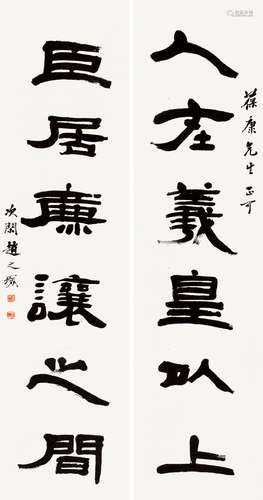 葆康先生正可
人在羲皇以上
臣居廉讓之間
次閑趙之琛